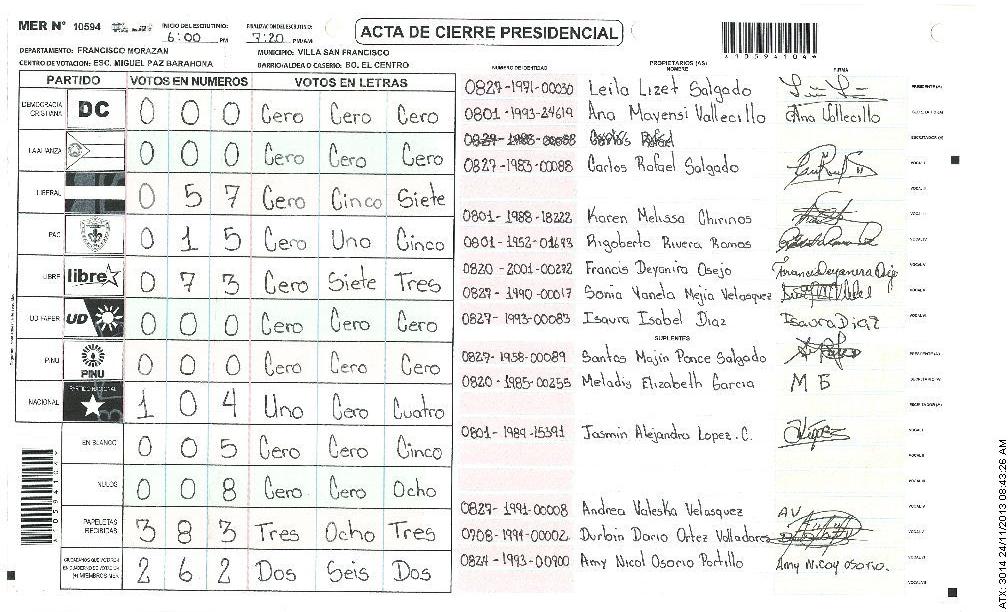 MER N° 10594
INICIO DEL ESCRUTINIO: 6:00 PM
FINALIZACION DEL ESCRUTINIO: 7:20 PM/AM
ACTA DE CIERRE PRESIDENCIAL
DEPARTAMENTO: FRANCISCO MORAZAN
MUNICIPIO: VILLA SAN FRANCISCO
CENTRO DE VOTACION: ESC. MIGUEL PAZ BARAHONA
BARRIO/ALDEA O CASERIO: BO. EL CENTRO
PARTIDO VOTOS EN NUMEROS VOTOS EN LETRAS
DEMOCRACIA CRISTIANA DC 0 0 0 Cero Cero Cero
LA ALIANZA 0 0 0 Cero Cero Cero
LIBERAL 0 5 7 Cero Cinco Siete
PAC 0 1 5 Cero Uno Cinco
LIBRE libre 0 7 3 Cero Siete Tres
UD FAPER UD 0 0 0 Cero Cero Cero
PINU PINU 0 0 0 Cero Cero Cero
NACIONAL PARTIDO NACIONAL 1 0 4 Uno Cero Cuatro
EN BLANCO 0 0 5 Cero Cero Cinco
NULOS 0 0 8 Cero Cero Ocho
PAPELETAS RECIBIDAS 3 8 3 Tres Ocho Tres
2 6 2 Dos Seis Dos
NUMERO DE IDENTIDAD PROPIETARIOS (AS) NOMBRE FIRMA
0827-1971-00030 Leila Lizet Salgado PRESIDENTE(A)
0801-1993-24619 Ana Mayensi Vallecillo Ana Vallecillo
0827-1983-00088 Carlos Rafael
0827-1983-00088 Carlos Rafael Salgado
0801-1988-18222 Karen Melissa Chirinos
0801-1952-01693 Rigoberto Rivera Ramos
0820-2001-00272 Francis Deyanira Osejo
0827-1990-00017 Sonia Yanela Mejia Velasquez
0827-1993-00083 Isaura Isabel Diaz Isaura Diaz
SUPLENTES
0827-1958-00089 Santos Majin Ponce Salgado PRESIDENTE(A)
0820-1985-00255 Meladis Elizabeth Garcia M E
0801-1989-15391 Jasmin Alejandra Lopez. C.
0827-1991-00008 Andrea Valeska Velasquez AV
0708-1991-00002 Durbin Dario Ortez Valladares
0824-1993-00900 Amy Nicol Osorio Portillo Amy Nicoy Osorio.
ATX: 3014 24/11/2013 08:43:26 AM